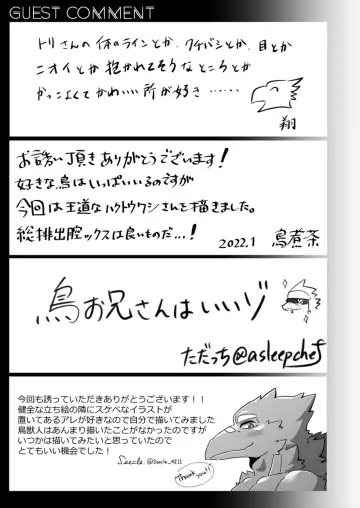 GUEST COMMENT
トリさんの体のラインとか、クチバシとか、目とか
ニオイとか抱かれてそうなところとか
かっこよくてかわいい所が好き……
翔
お誘い頂きありがとうございます！
好きな鳥はいっぱいいるのですが
今回は王道なハクトウワシさんを描きました。
総排出腔ックスは良いものだ…！
2022.1 鳥煮茶
鳥お兄さんはいいゾ
ただっち@asleepchef
今回も誘っていただきありがとうございます！！
健全な立ち絵の隣にスケベなイラストが
置いてあるアレが好きなので自分で描いてみました
鳥獣人はあんまり描いたことがなかったのですが
いつかは描いてみたいと思っていたので
とてもいい機会でした！
Thank you!!